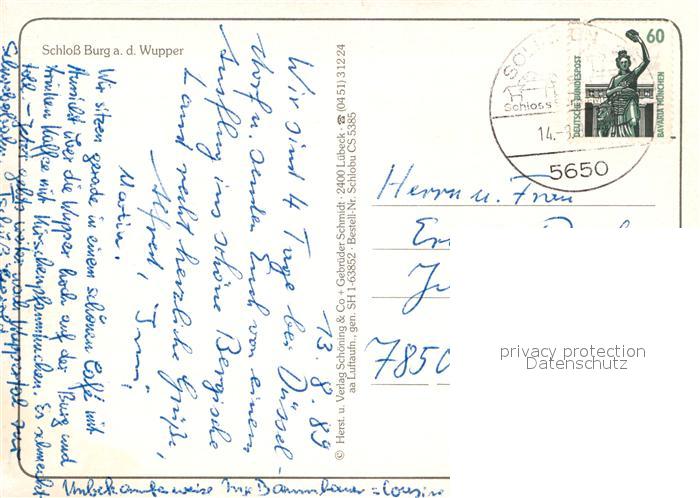 Schloß Burg a. d. Wupper
13. 8. 89
Wir sind 4 Tage bei Düssel-
dorf u. senden Euch von einem
Ausflug ins schöne Bergische
Land recht herzliche Grüße,
Alfred, Irmi
Martin.
Wir sitzen gerade in einem schönen Café mit
Aussicht über die Wupper hoch auf der Burg und
trinken Kaffee mit Kirschenpfannkuchen. Es schmeckt
toll – jetzt geht's weiter nach Wuppertal zur
Schwebebahn.
Unbekannterweise Inge Baumhauer = Cousine
© Herst. u. Verlag Schöning & Co + Gebrüder Schmidt · 2400 Lübeck · ☎ (04 51) 3 12 24
aa Luftaufn., gen. SH 1-63852 · Bestell-Nr. Schlobu CS 5385
SOLINGEN
Schloss
14.-
5650
60
DEUTSCHE BUNDESPOST
BAVARIA MÜNCHEN
Herrn u. Frau
7850
privacy protection
Datenschutz